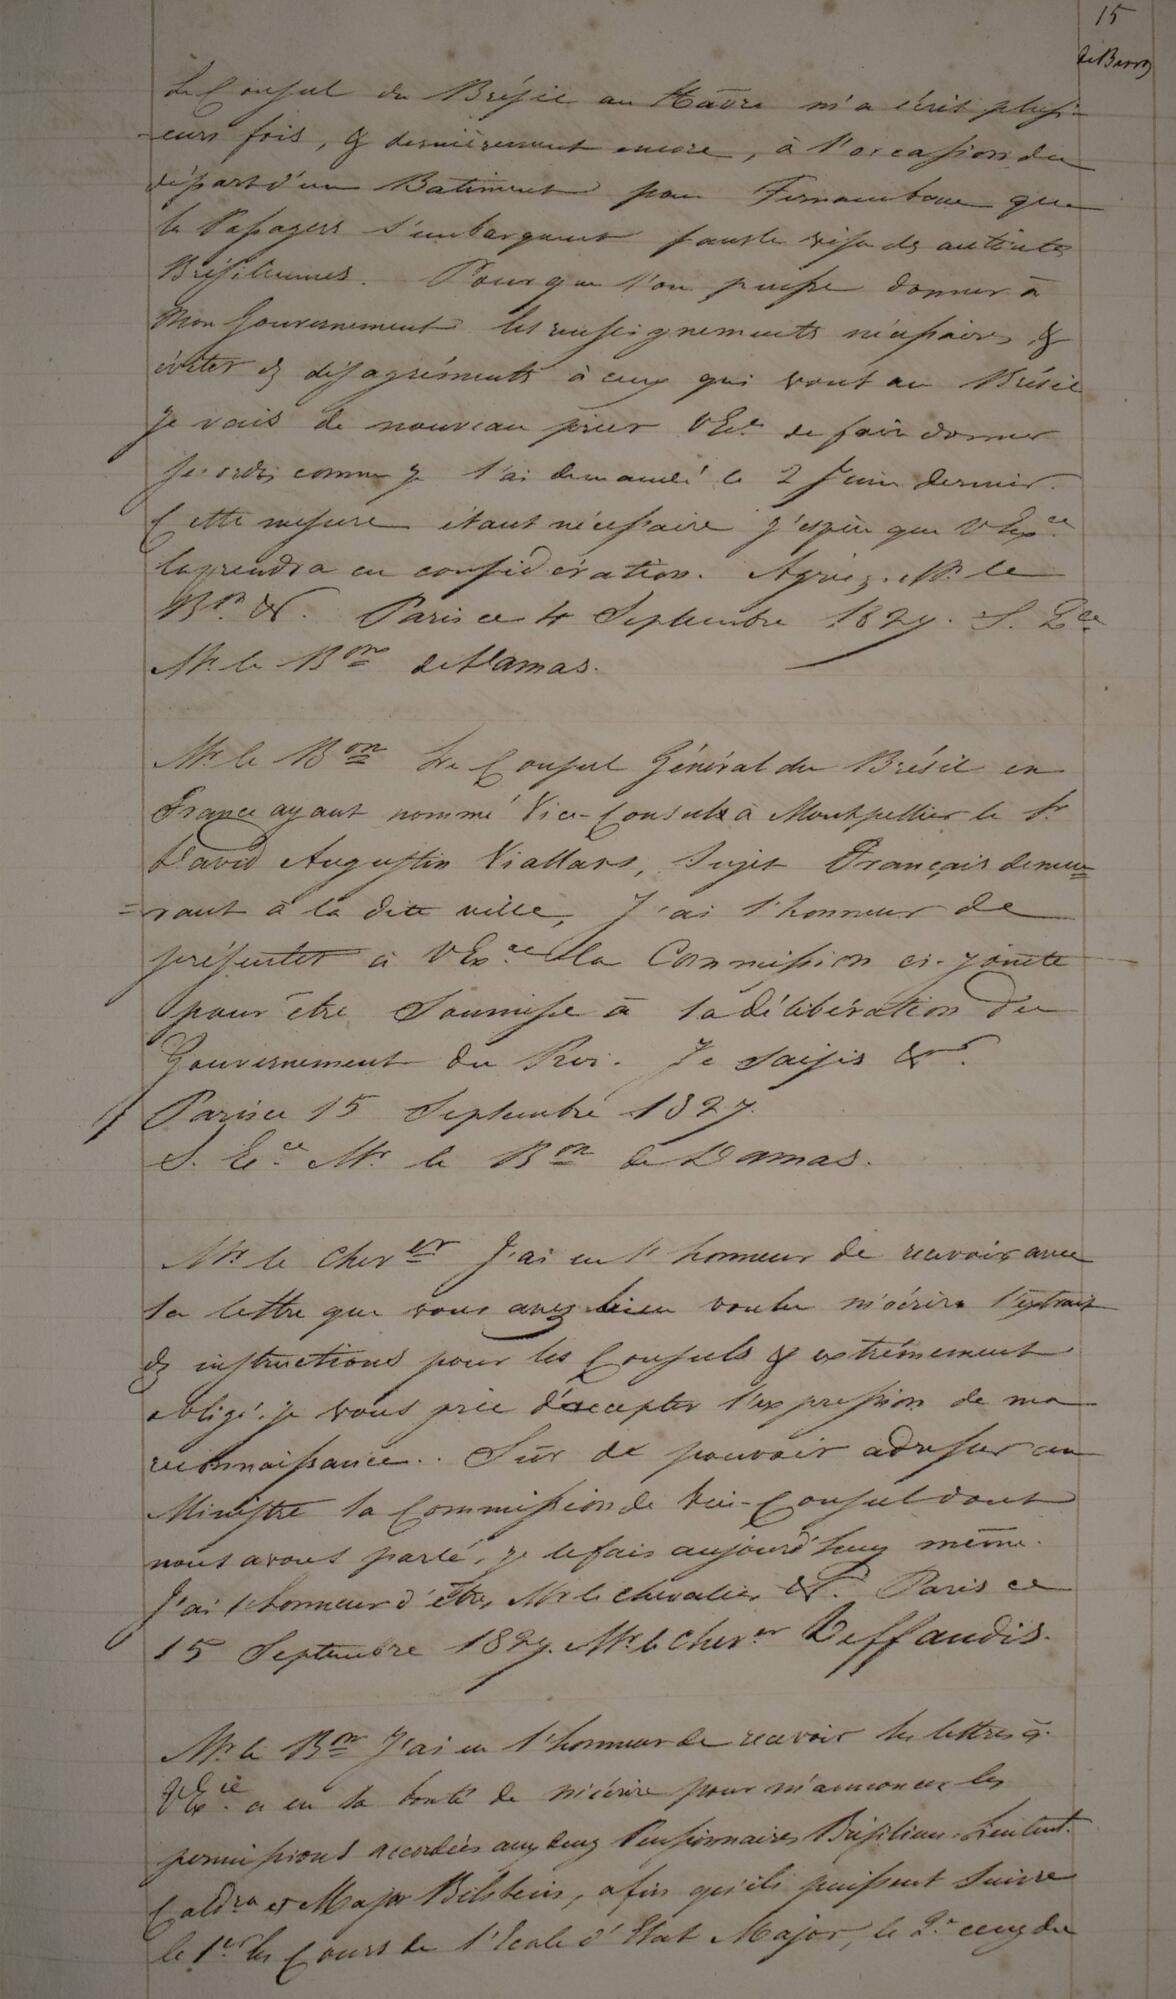 15
de Barros
Le Consul du Brésil au Hâvre m'a écrit plusi-
eurs fois, & dernièrement encore, à l'occasion du
départ d'un Batiment pour Fernambouc que
les Passagers s'embarquent sans le visa des autorités
Brésiliennes. Pour que l'on puisse donner à
Mon Gouvernement les renseignements nécessaires &
éviter des désagréments à ceux qui vont au Brésil
je vais de nouveau prier VEce de faire donner
ordres comme je l'ai demandé le 2 Juin dernier.
Cette mesure étant nécessaire j'espère que VExce
la prendra en considération. Agréez. Mr. le
Bon &. Paris ce 4 Septembre 1827. S. Ece
Mr. le Bon de Damas.
Mr. le Bon Le Consul Général du Brésil en
France ayant nommé Vice-Consul à Montpellier le Sr
David Augustin Viallars, Sujet Français demeu=
=rant à la dite ville, J'ai l'honneur de
présenter à VExce la Commission ci-jointe
pour être Soumise à la délibération du
Gouvernement du Roi. Je Saisis &a.
Paris ce 15 Septembre 1827.
S. Ece Mr. le Bon de Damas.
Mr. le Chever J'ai eu l'honneur de recevoir avec
la lettre que vous avez bien voulu m'écrire l'extrait
des instructions pour les Consuls & extrêmement
obligé je vous prie d'accepter l'expression de ma
reconnaissance.. Sûr de pouvoir adresser au
Ministre la Commission de Vice-Consul dont
nous avons parlé, je le fais aujourd'huy même.
J'ai l'honneur d'être, Mr le chevalier &a. Paris ce
15 Septembre 1827. Mr. le Chever Deffaudis.
Mr. le Bon J'ai eu l'honneur de recevoir les lettres q.
VExcie a eu la bonté de m'écrire pour m'annoncer les
permissions accordées aux deux Pensionnaires Brésiliens. Lieutent.
Caldra et Major Bilstein, afin qu'ils puissent Suivre
le 1er les Cours de l'Ecole d'Etat Major, le 2e ceux du